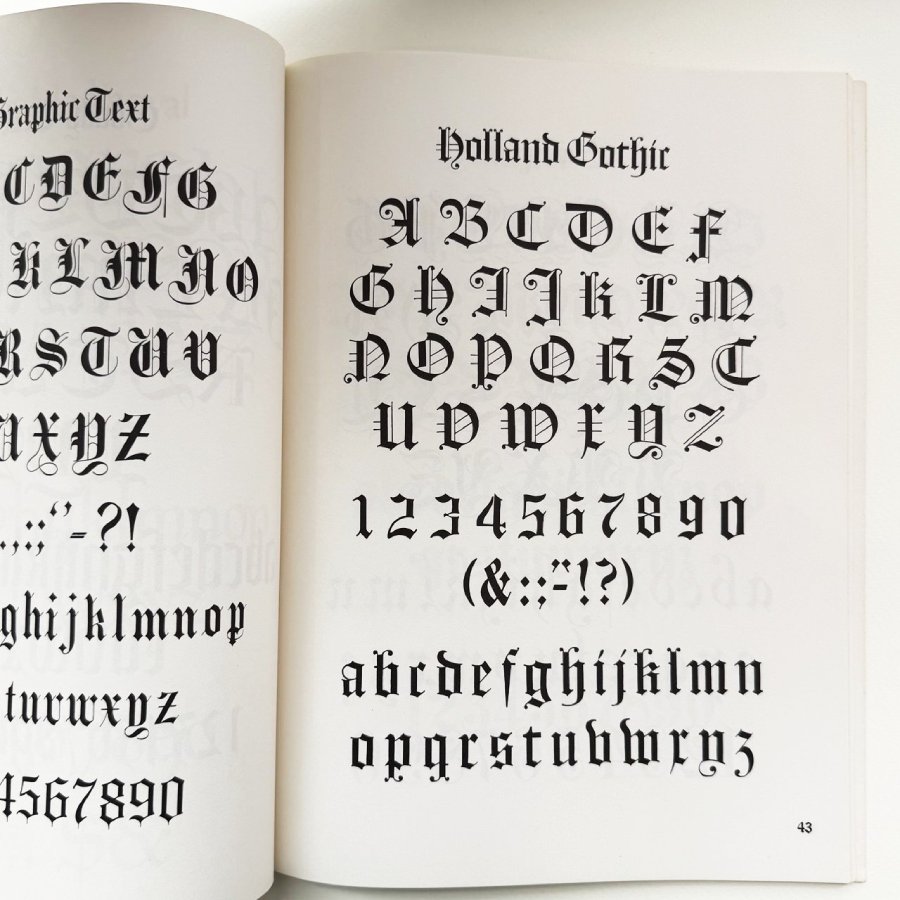 Graphic Text
CDEFG
KLMNO
RSTUV
XYZ
.,:;‘’-?!
ghijklmnop
turwxyz
4567890
Holland Gothic
ABCDEF
GHIJKLM
NOPQRST
UVWXYZ
1234567890
(&:;“-!?)
abcdefghijklmn
opqrstuvwxyz
43